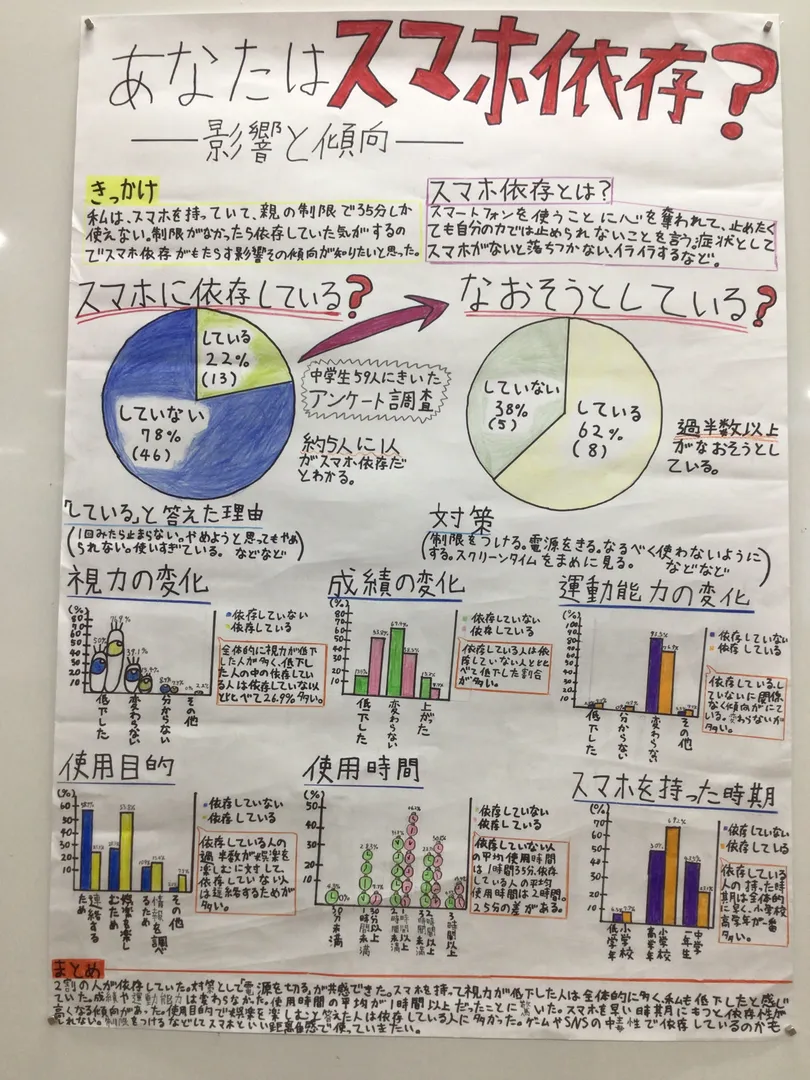 あなたはスマホ依存?
影響と傾向
きっかけ
私は、スマホを持っていて、親の制限で35分しか
使えない。制限がなかったら依存していた気がするの
でスマホ依存がもたらす影響その傾向が知りたいと思った。
スマホ依存とは?
スマートフォンを使うことに心を奪われて、止めたく
ても自分の力では止められないことを言う。症状として
スマホがないと落ちつかない、イライラするなど。
スマホに依存している?
なおそうとしている?
している
22%
(13)
していない
78%
(46)
中学生59人にきいた
アンケート調査
約5人に1人
がスマホ依存だ
とわかる。
していない
38%
(5)
している
62%
(8)
過半数以上
がなおそうとし
ている。
「している」と答えた理由
(1回みたら止まらない。やめようと思ってもやめ
られない。使いすぎている。などなど)
対策
(制限をつける。電源をきる。なるべく使わないように
する。スクリーンタイムをまめに見る。などなど)
視力の変化
(%)
80
70
60
50
40
30
20
10
低下した
変わらない
分からない
その他
依存していない
依存している
全体的に視力が低下
した人が多く、低下し
た人の中の依存してい
る人は依存していない人
とくらべて26.9%多い。
成績の変化
(%)
80
70
60
50
40
30
20
10
低下した
変わらない
上がった
依存していない
依存している
依存している人は依
存していない人とくら
べて低下した割合
が多い。
運動能力の変化
(%)
100
90
80
70
60
50
40
30
20
10
低下した
分からない
変わらない
その他
依存していない
依存している
依存している、し
ていないに関係
なく傾向がにて
いる。変わらないが
多い。
使用目的
(%)
60
50
40
30
20
10
連絡する
ため
娯楽を楽し
むため
情報を調べ
るため
その他
依存していない
依存している
依存している人の
過半数が娯楽を
楽しむに対して、
依存していない人
は連絡するためが
多い。
使用時間
(%)
50
40
30
20
10
30分
未満
30分以上
1時間未満
1時間以上
2時間未満
2時間以上
3時間未満
3時間以上
依存していない
依存している
依存していない人
の平均使用時間
は1時間35分、依存
している人の平均
使用時間は2時間。
25分の差がある。
スマホを持った時期
(%)
70
60
50
40
30
20
10
小学校
低学年
小学校
高学年
中学
一年生
依存していない
依存している
依存している
人の持った時
期は全体的
に早く、小学校
高学年が一番
多い。
まとめ
2割の人が依存していた。対策として「電源を切る」が共感できた。スマホを持って視力が低下した人は全体的に多く、私も低下したと感じ
ていた。成績や運動能力は変わらなかった。使用時間の平均が1時間以上だったことに驚いた。スマホを早い時期にもつと依存性が
高くなる傾向があった。使用目的で娯楽を楽しむと答えた人は依存している人に多かった。ゲームやSNSの中毒性で依存しているのかも
しれない。制限をつけるなどしてスマホといい距離自然で使っていきたい。